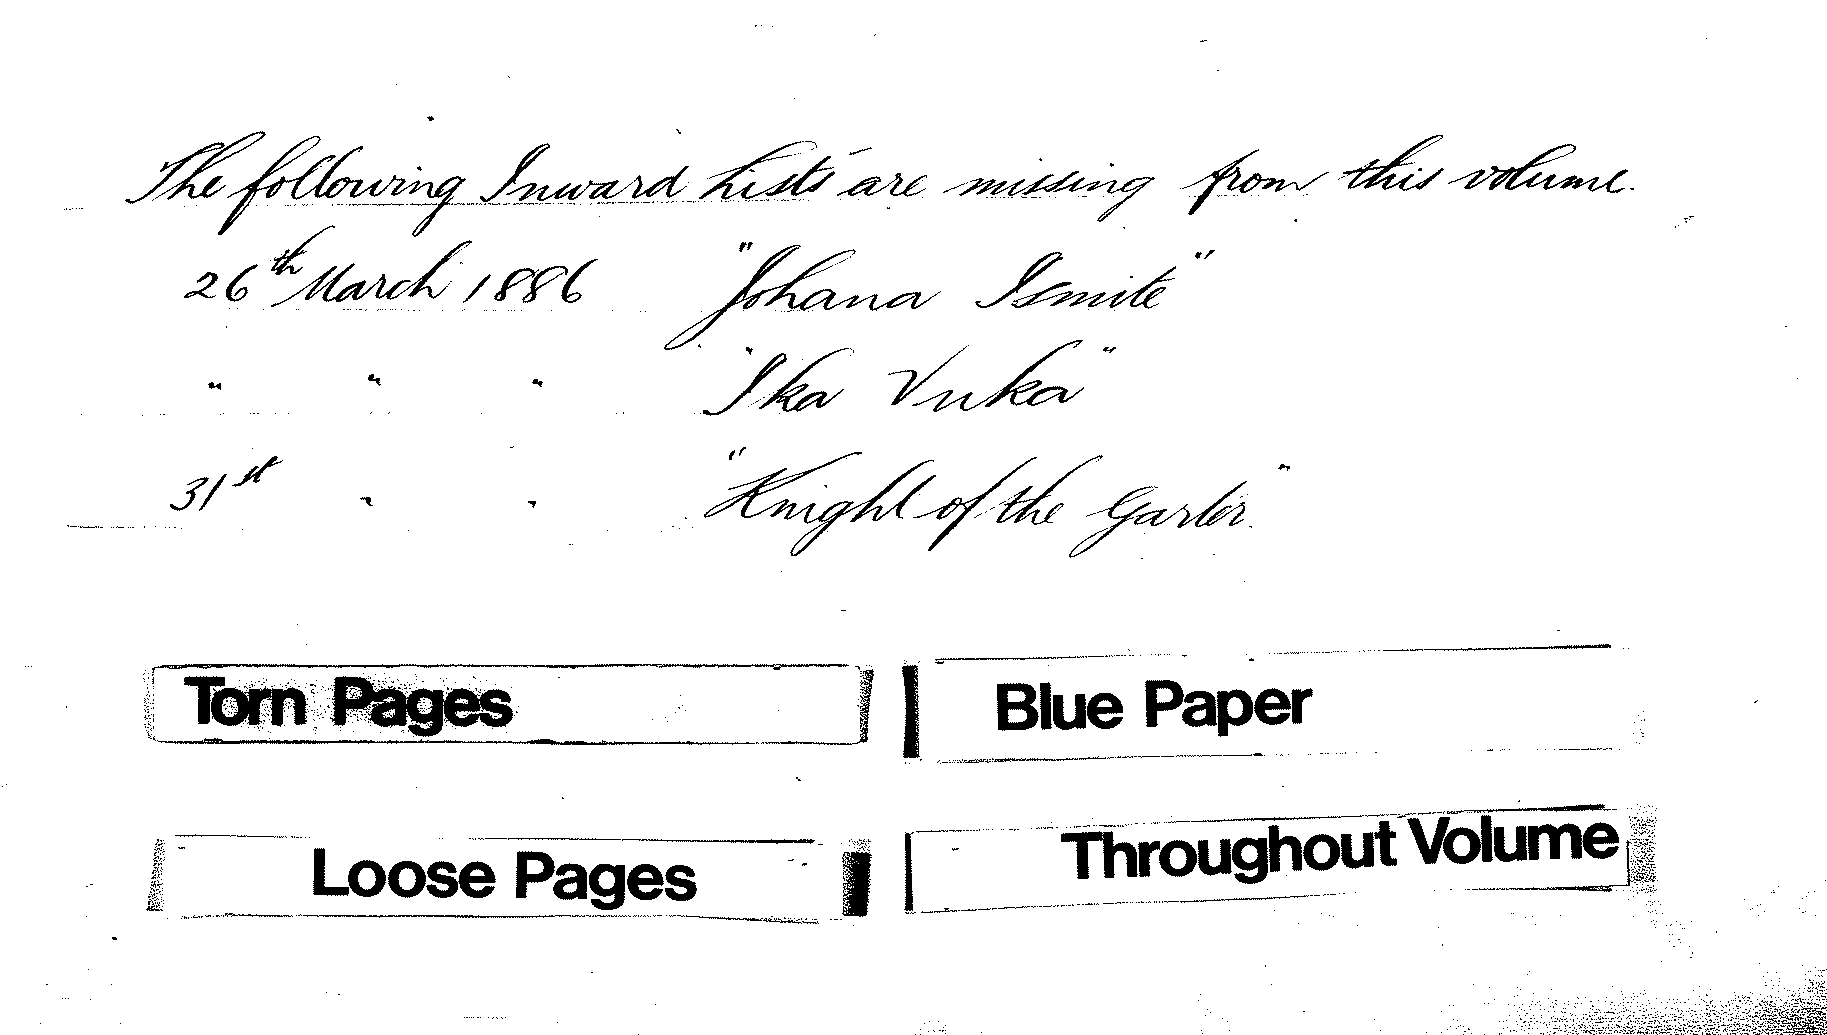 The following Inward Lists are missing from this volume.
26th March 1886 "Johana Ismite"
" " " "Ika Vuka"
31st " " "Knight of the Garter."
Torn Pages
Blue Paper
Loose Pages
Throughout Volume